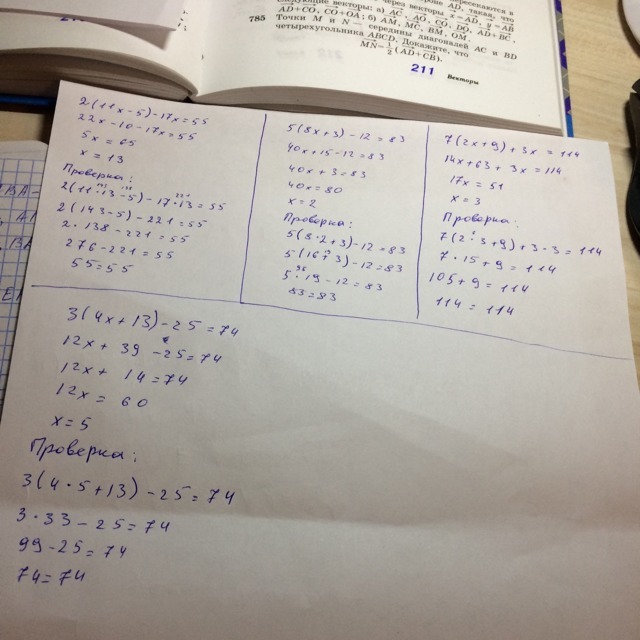 785
Точки M и N — середины диагоналей AC и BD
четырёхугольника ABCD. Докажите, что
MN = 1/2 (AD + CB).
211
Векторы
2(11x-5)-17x=55
22x-10-17x=55
5x=65
x=13
Проверка:
2(11·13-5)-17·13=55
2(143-5)-221=55
2·138-221=55
276-221=55
55=55
5(8x+3)-12=83
40x+15-12=83
40x+3=83
40x=80
x=2
Проверка:
5(8·2+3)-12=83
5(16+3)-12=83
5·19-12=83
83=83
7(2x+9)+3x=114
14x+63+3x=114
17x=51
x=3
Проверка:
7(2·3+9)+3·3=114
7·15+9=114
105+9=114
114=114
3(4x+13)-25=74
12x+39-25=74
12x+14=74
12x=60
x=5
Проверка:
3(4·5+13)-25=74
3·33-25=74
99-25=74
74=74